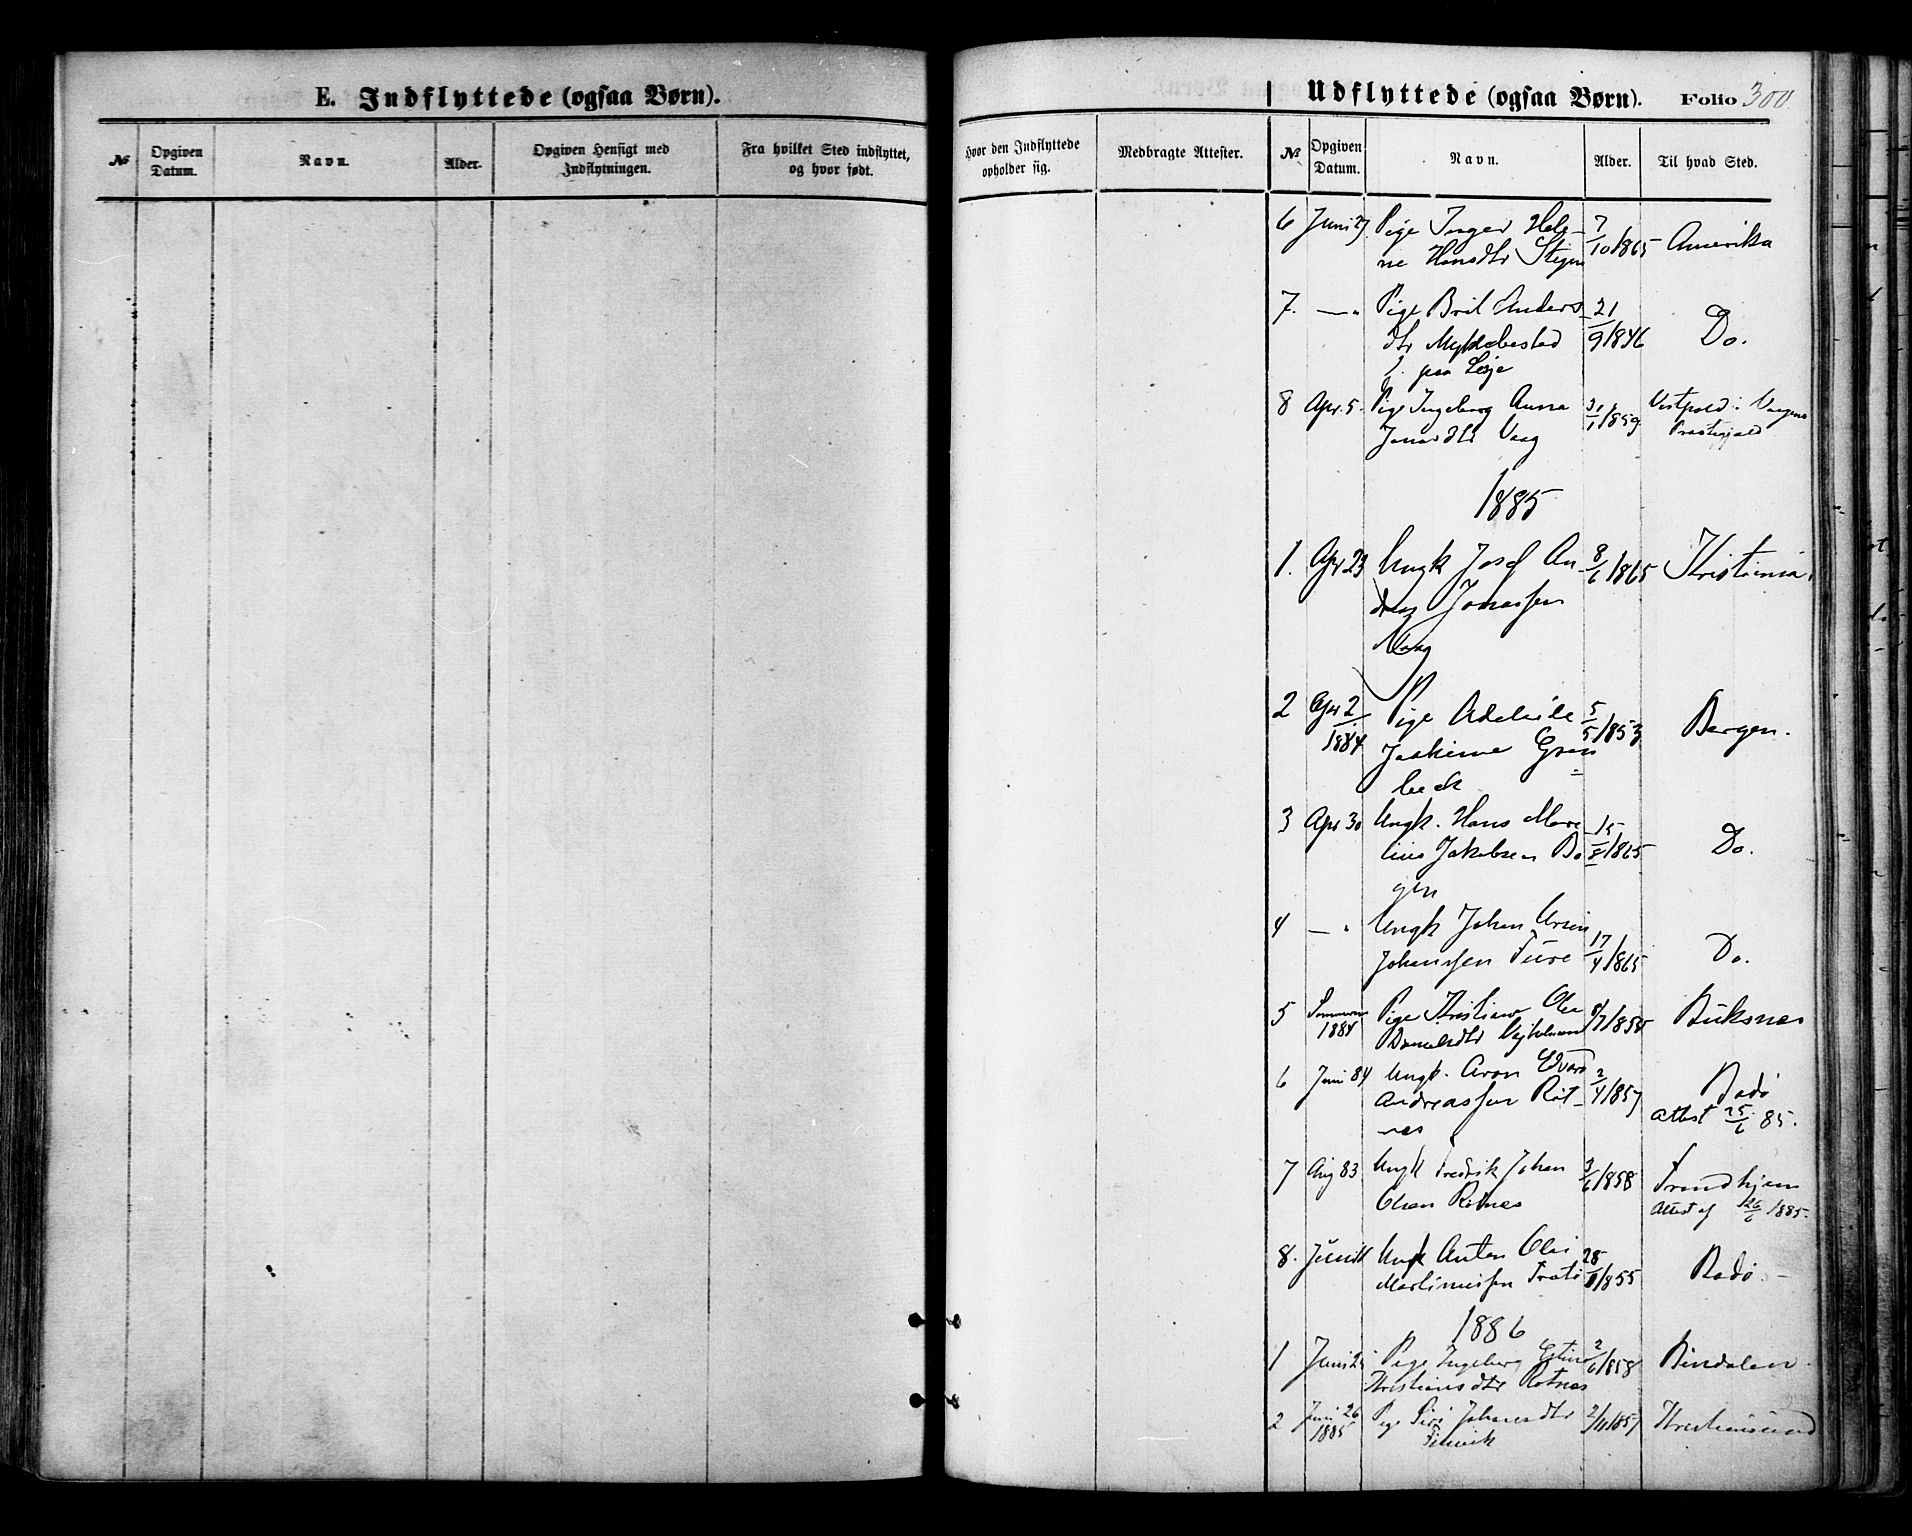 E. Indflyttede (ogsaa Børn).
№ Opgiven Datum. Navn. Alder. Opgiven Hensigt med Indflytningen. Fra hvilket Sted indflyttet, og hvor født.
Hvor den Indflyttede opholder sig. Medbragte Attester.
Udflyttede (ogsaa Børn). Folio 300.
№ Opgiven Datum. Navn. Alder. Til hvad Sted.
6 Juni 27 Pige Inger Hele- 7/10/1865 Amerika
ne Hansdtr Stegen
7. —„ Pige Brit Anders- 21/9/1846 Do.
dtr Myklebostad
f. paa Lesje
8 Apr. 5. Pige Ingeborg Anna 31/1/1859 Vestpold i Vaagens
Jonasdtr Vaag Præstegjeld
1885
1. Apr 23 Ungk Josef An- 8/6/1865 Kristiania
dreas Jonassen
Vaag
2 Apr 2/1884 Pige Adelaide 5/5/1853 Bergen.
Joakime Grøn
beck
3 Apr 30 Ungk. Hans Mare- 15/8/1865 Do.
lius Jakobsen Bo
gen
4 —„ Ungk Johan Ursin
Johanssen Fure 17/4/1865 Do.
5 Sommeren 1884 Pige Kristine Ole 8/7/185 Buksnes
Danielsdtr
6 Juni 84 Ungk. Aron Edvard 2/4/1857 Bodø
Andreassen Røt- Attest 25/6 85.
nes
7 Aug 83 Ungk Fredrik Johan 3/6/1858 Trondhjem
Olsen Røtnes Attest af 26/6 1885.
8. Juni Ungk Anton Olai 28/ /1855 Bodø.
Martinussen
1886
1 Juni 2 Pige Ingeborg 2/6/1858 Bindalen.
Kristiansdtr Røtnes
2 Juni 26 1885 Pige Siri Johansdtr 2/11/1857 Kristiansund